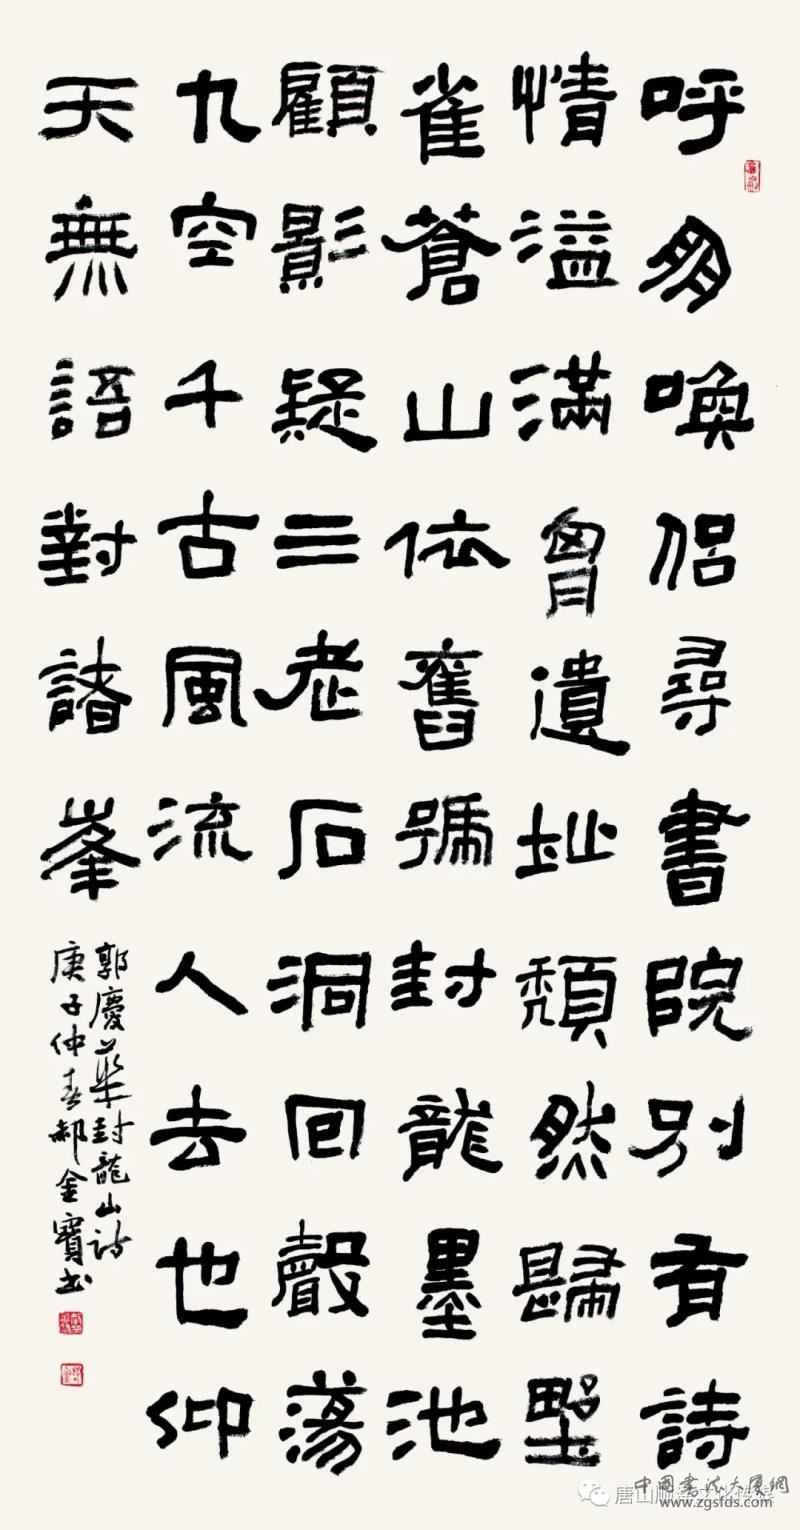 呼朋喚侶尋書院別有詩
情溢滿胷遺址頹然歸墅
雀蒼山依舊號封龍墨池
顧影疑三老石洞回聲蕩
九空千古風流人去也仰
天無語對諸峯
郭慶華封龍山詩
庚子仲春郝金寶書
唐山
文化傳媒
中国書法大厦網
www.zgsfds.com